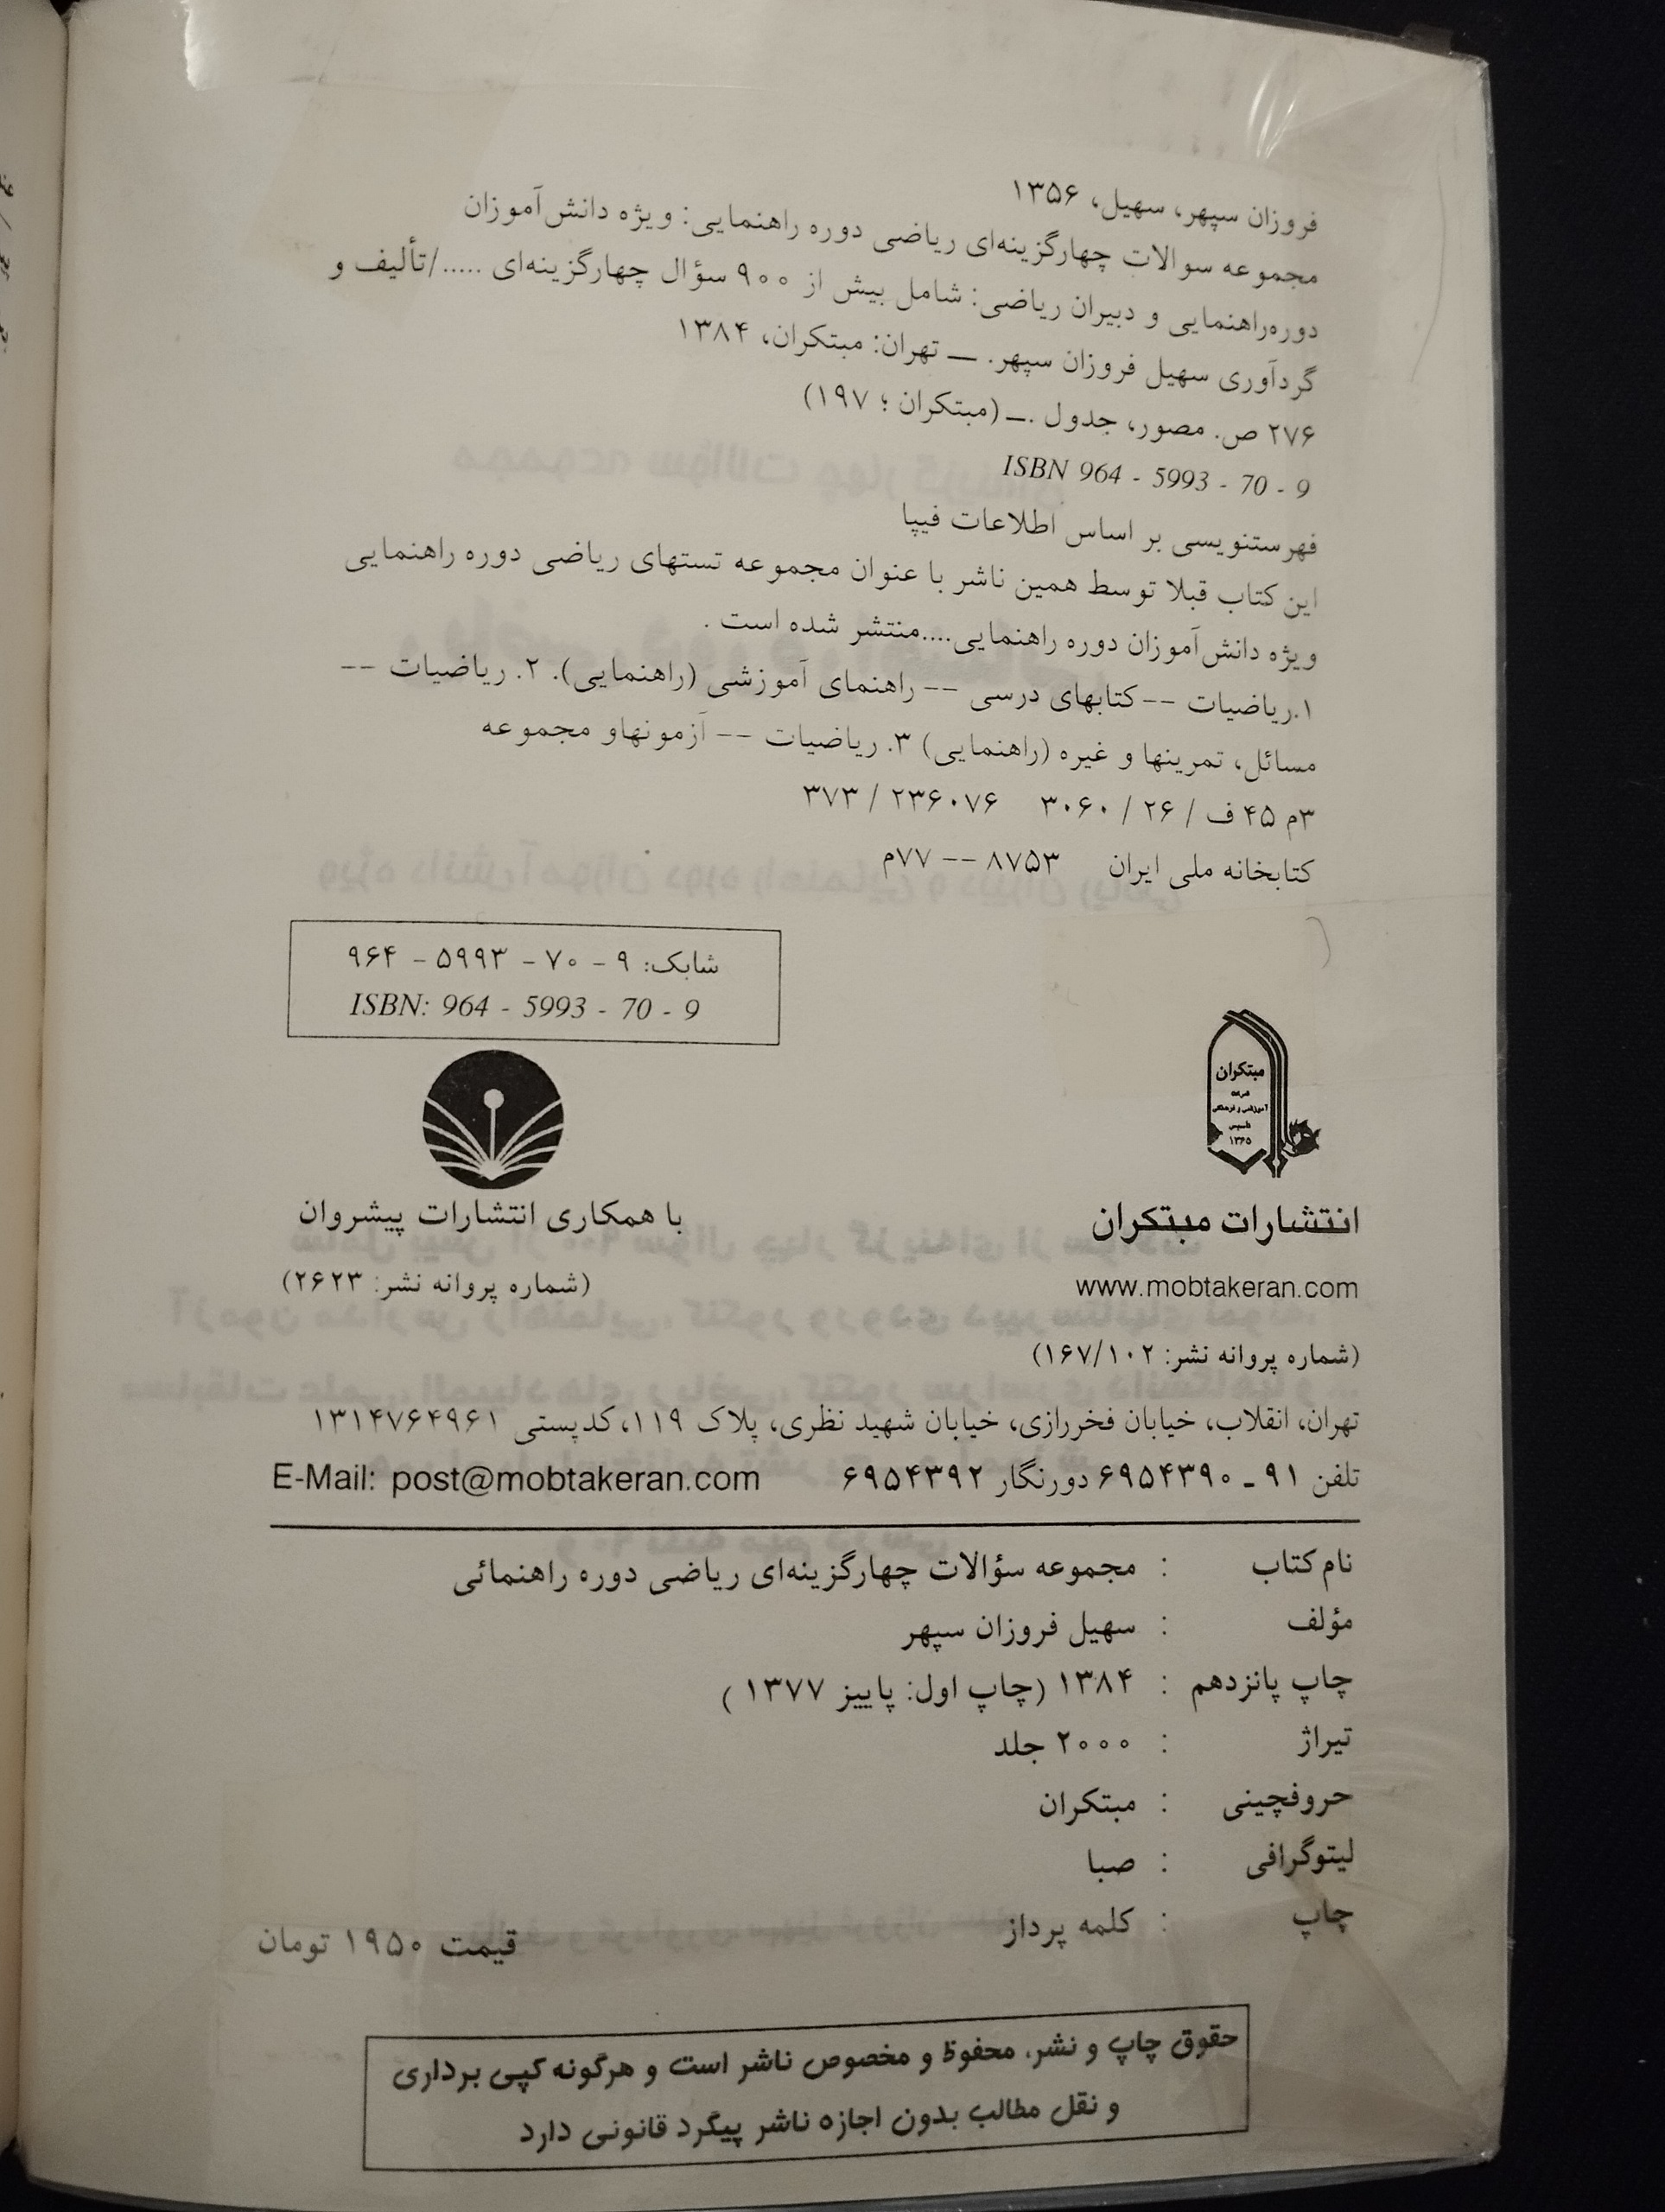 فروزان سپهر، سهیل، ۱۳۵۶
مجموعه سوالات چهارگزینه‌ای ریاضی دوره راهنمایی: ویژه دانش‌آموزان
دوره‌راهنمایی و دبیران ریاضی: شامل بیش از ۹۰۰ سؤال چهارگزینه‌ای ...../تألیف و
گردآوری سهیل فروزان سپهر. — تهران: مبتکران، ۱۳۸۴
۲۷۶ ص. مصور، جدول .ـ (مبتکران ؛ ۱۹۷)
ISBN 964 - 5993 - 70 - 9
فهرستنویسی بر اساس اطلاعات فیپا
این کتاب قبلا توسط همین ناشر با عنوان مجموعه تستهای ریاضی دوره راهنمایی
ویژه دانش‌آموزان دوره راهنمایی....منتشر شده است .
۱.ریاضیات -- کتابهای درسی -- راهنمای آموزشی (راهنمایی). ۲. ریاضیات --
مسائل، تمرینها و غیره (راهنمایی) ۳. ریاضیات -- آزمونهاو مجموعه
۳م ۴۵ ف / ۲۶ / ۳۰۶۰ ۲۳۶۰۷۶ / ۳۷۳
کتابخانه ملی ایران ۸۷۵۳ -- ۷۷م
شابک: ۹ - ۷۰ - ۵۹۹۳ - ۹۶۴
ISBN: 964 - 5993 - 70 - 9
مبتکران
آموزشی و فرهنگی
تأسیس
۱۳۶۵
انتشارات مبتکران
با همکاری انتشارات پیشروان
www.mobtakeran.com
(شماره پروانه نشر: ۲۶۲۳)
(شماره پروانه نشر: ۱۶۷/۱۰۲)
تهران، انقلاب، خیابان فخررازی، خیابان شهید نظری، پلاک ۱۱۹،کدپستی ۱۳۱۴۷۶۴۹۶۱
تلفن ۹۱ ـ ۶۹۵۴۳۹۰ دورنگار ۶۹۵۴۳۹۲ E-Mail: post@mobtakeran.com
نام کتاب : مجموعه سؤالات چهارگزینه‌ای ریاضی دوره راهنمائی
مؤلف : سهیل فروزان سپهر
چاپ پانزدهم : ۱۳۸۴ (چاپ اول: پاییز ۱۳۷۷ )
تیراژ : ۲۰۰۰ جلد
حروفچینی : مبتکران
لیتوگرافی : صبا
چاپ : کلمه پرداز
قیمت ۱۹۵۰ تومان
حقوق چاپ و نشر، محفوظ و مخصوص ناشر است و هرگونه کپی برداری
و نقل مطالب بدون اجازه ناشر پیگرد قانونی دارد